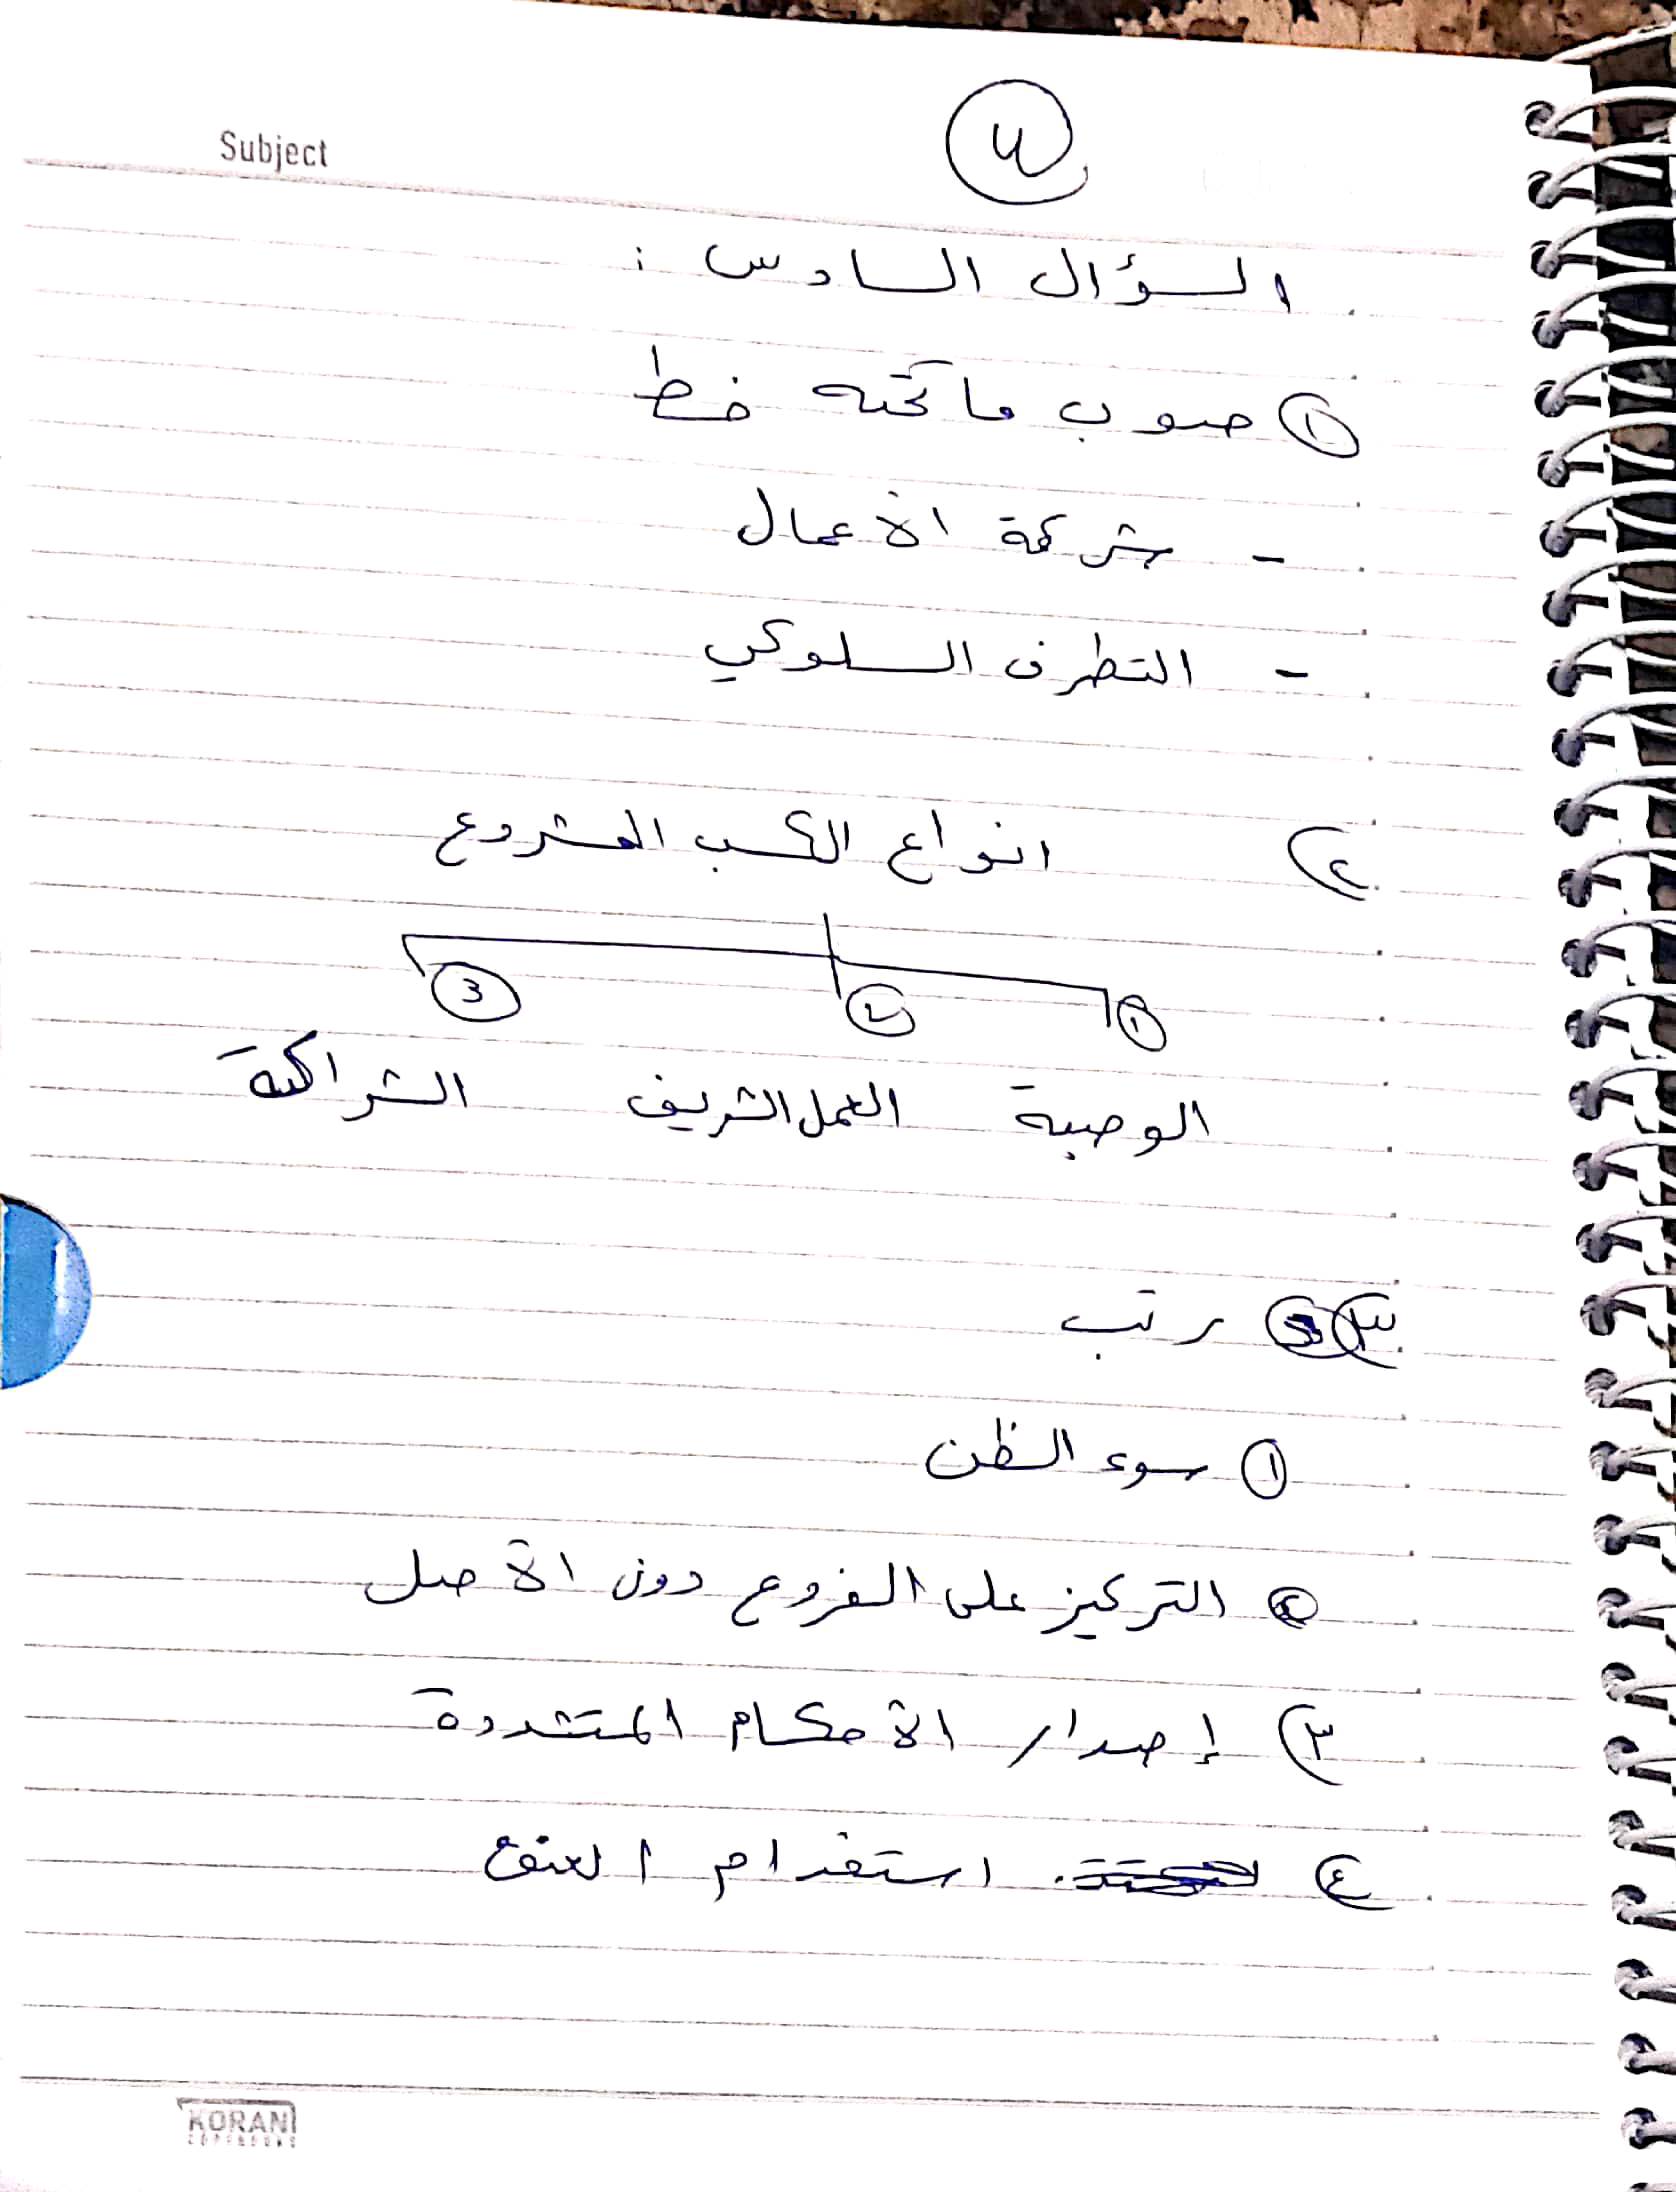 Subject
السؤال السادس :
① صوب ما تحته خط
- شركة الأعمال
- التطرف السلوكي
٢) انواع الكسب المشروع
① ② ③
الوصية العمل الشريف الشراكة
٣) رتب
① سوء الظن
② التركيز على الفروع دون الأصل
٣) إصدار الأحكام المتشددة
٤) استخدام العنف
KORAN